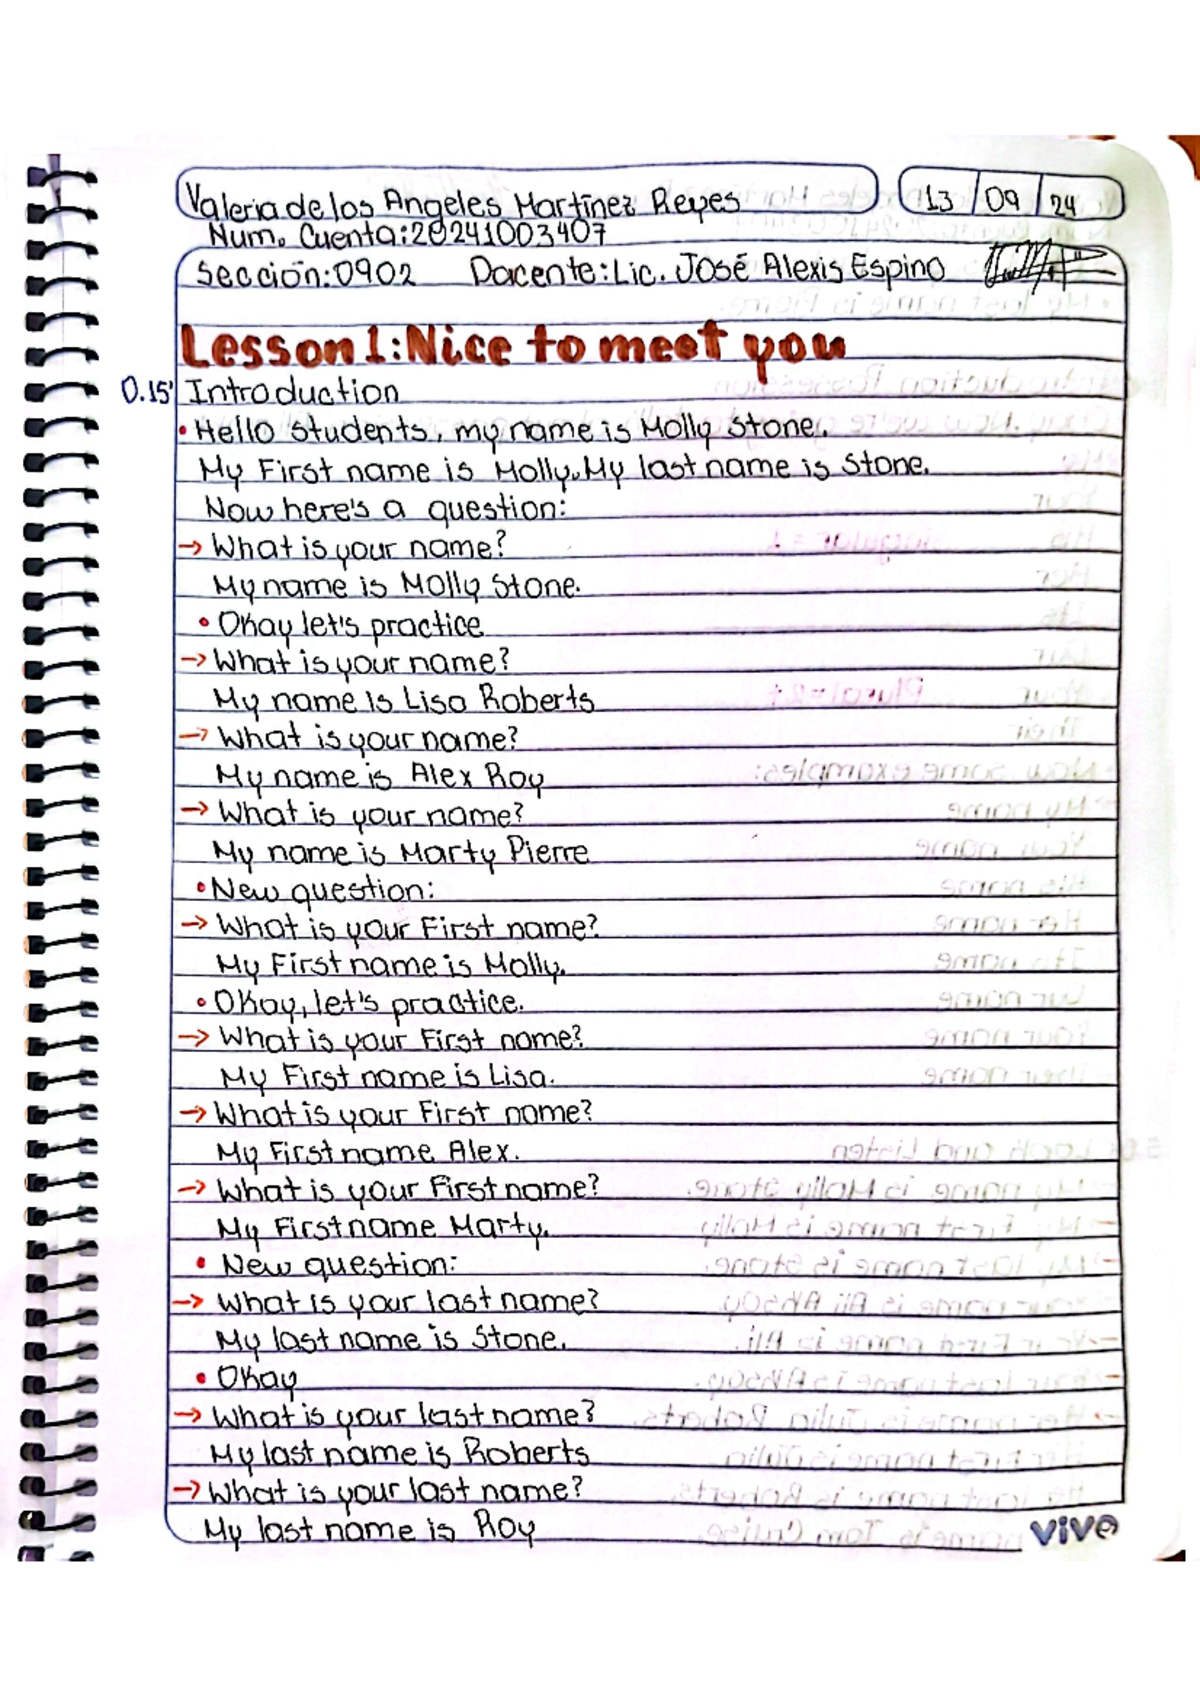 Valeria de los Angeles Martinez Reyes 13 09 24
Num. Cuenta:20241003407
Sección:0902 Docente:Lic. José Alexis Espino
Lesson 1:Nice to meet you
0.15' Introduction
• Hello students, my name is Molly Stone.
My First name is Molly.My last name is Stone.
Now here's a question:
→ What is your name?
My name is Molly Stone.
• Okay let's practice
→ What is your name?
My name is Lisa Roberts
→ What is your name?
My name is Alex Roy
→ What is your name?
My name is Marty Pierre
• New question:
→ What is your First name?
My First name is Molly.
• Okay, let's practice.
→ What is your First name?
My First name is Lisa.
→ What is your First name?
My First name Alex.
→ What is your First name?
My First name Marty.
• New question:
→ What is your last name?
My last name is Stone.
• Okay
→ What is your last name?
My last name is Roberts
→ What is your last name?
My last name is Roy
vive